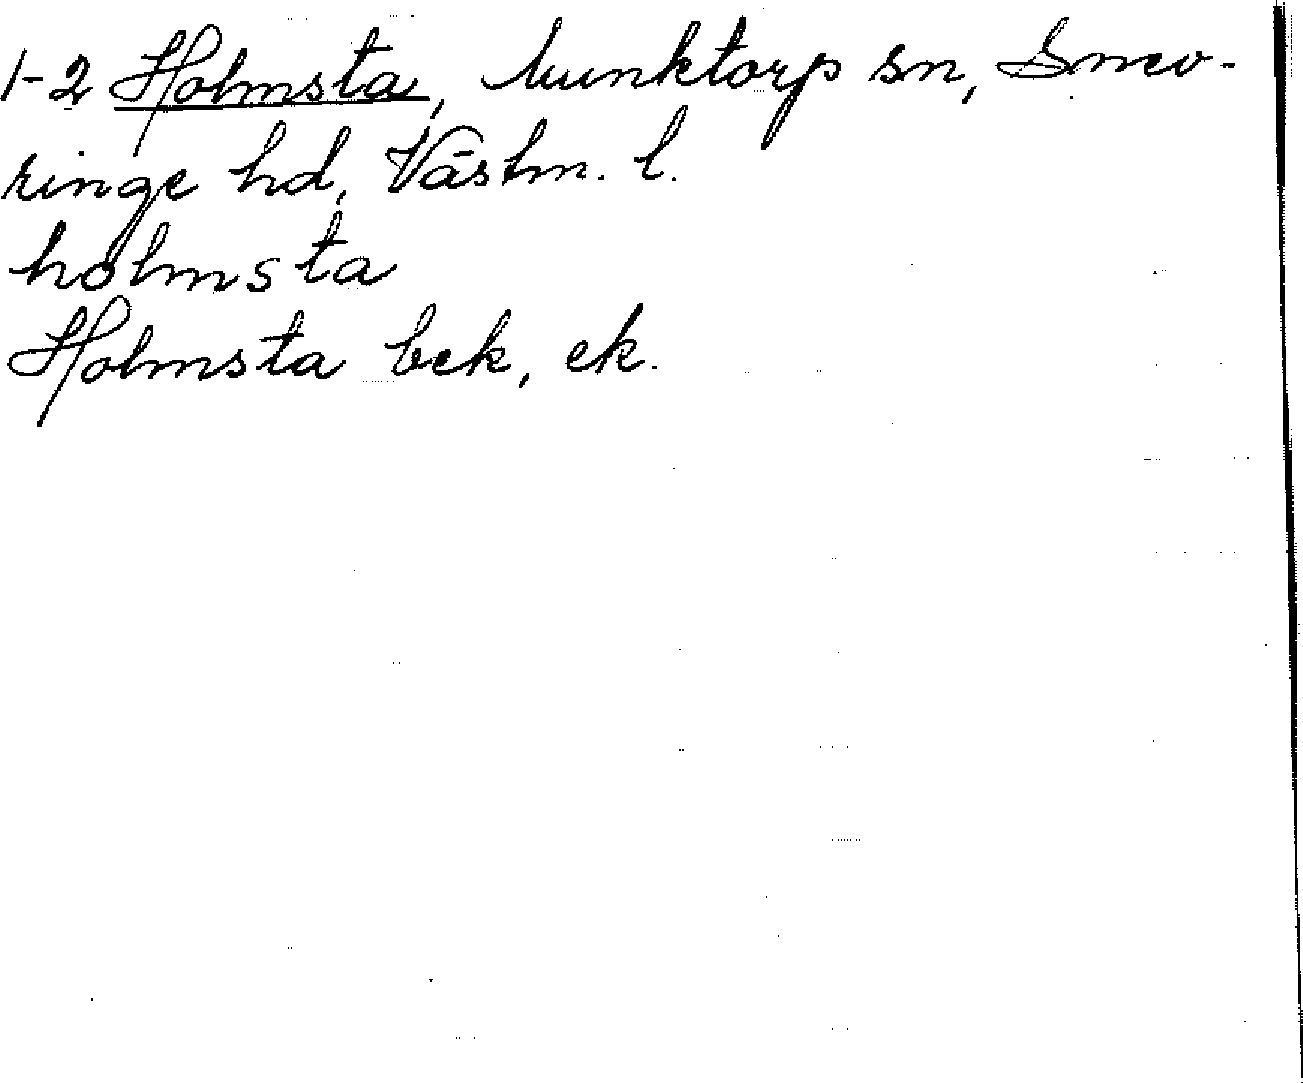 1-2 Holmsta, Munktorp sn, Snev-
ringe hd, Västm. l.
holmsta
Holmsta bek, ek.